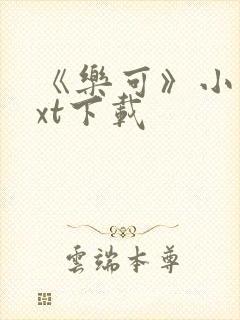 《樂可》小
xt下載
雲端本尊